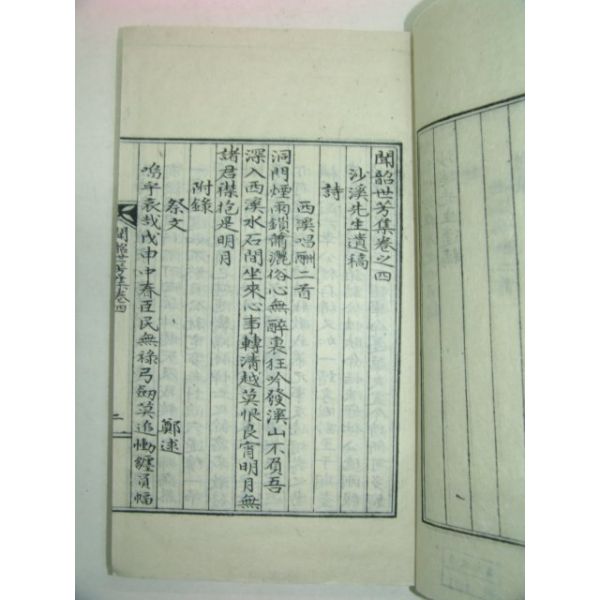 聞韶世芳集卷之四
沙溪先生遺稿
詩
西溪唱酬二首
洞門煙雨鎖蕭灑俗心無醉裏狂吟發溪山不負吾
深入西溪水石間坐來心事轉清越莫恨良宵明月無
諸君襟抱是明月
附錄
祭文
鄭逑
嗚乎哀哉戊申中春臣民無祿弓劒莫追慟纏員幅
聞韶世芳集卷四